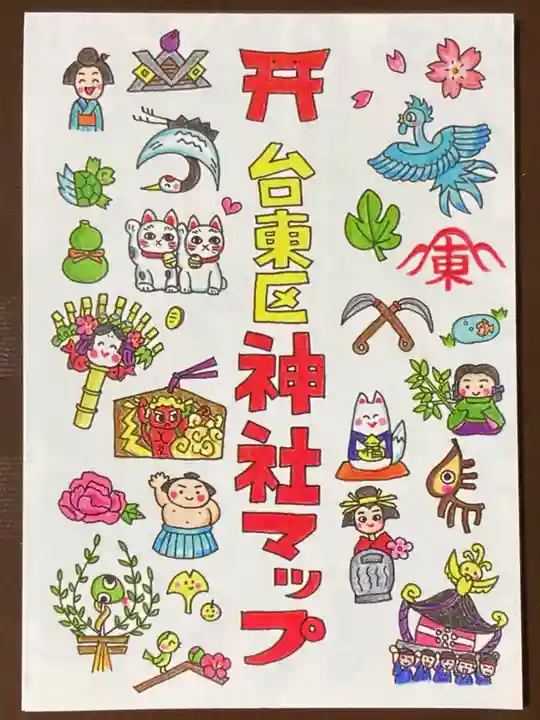 台東区
神社マップ
東
福